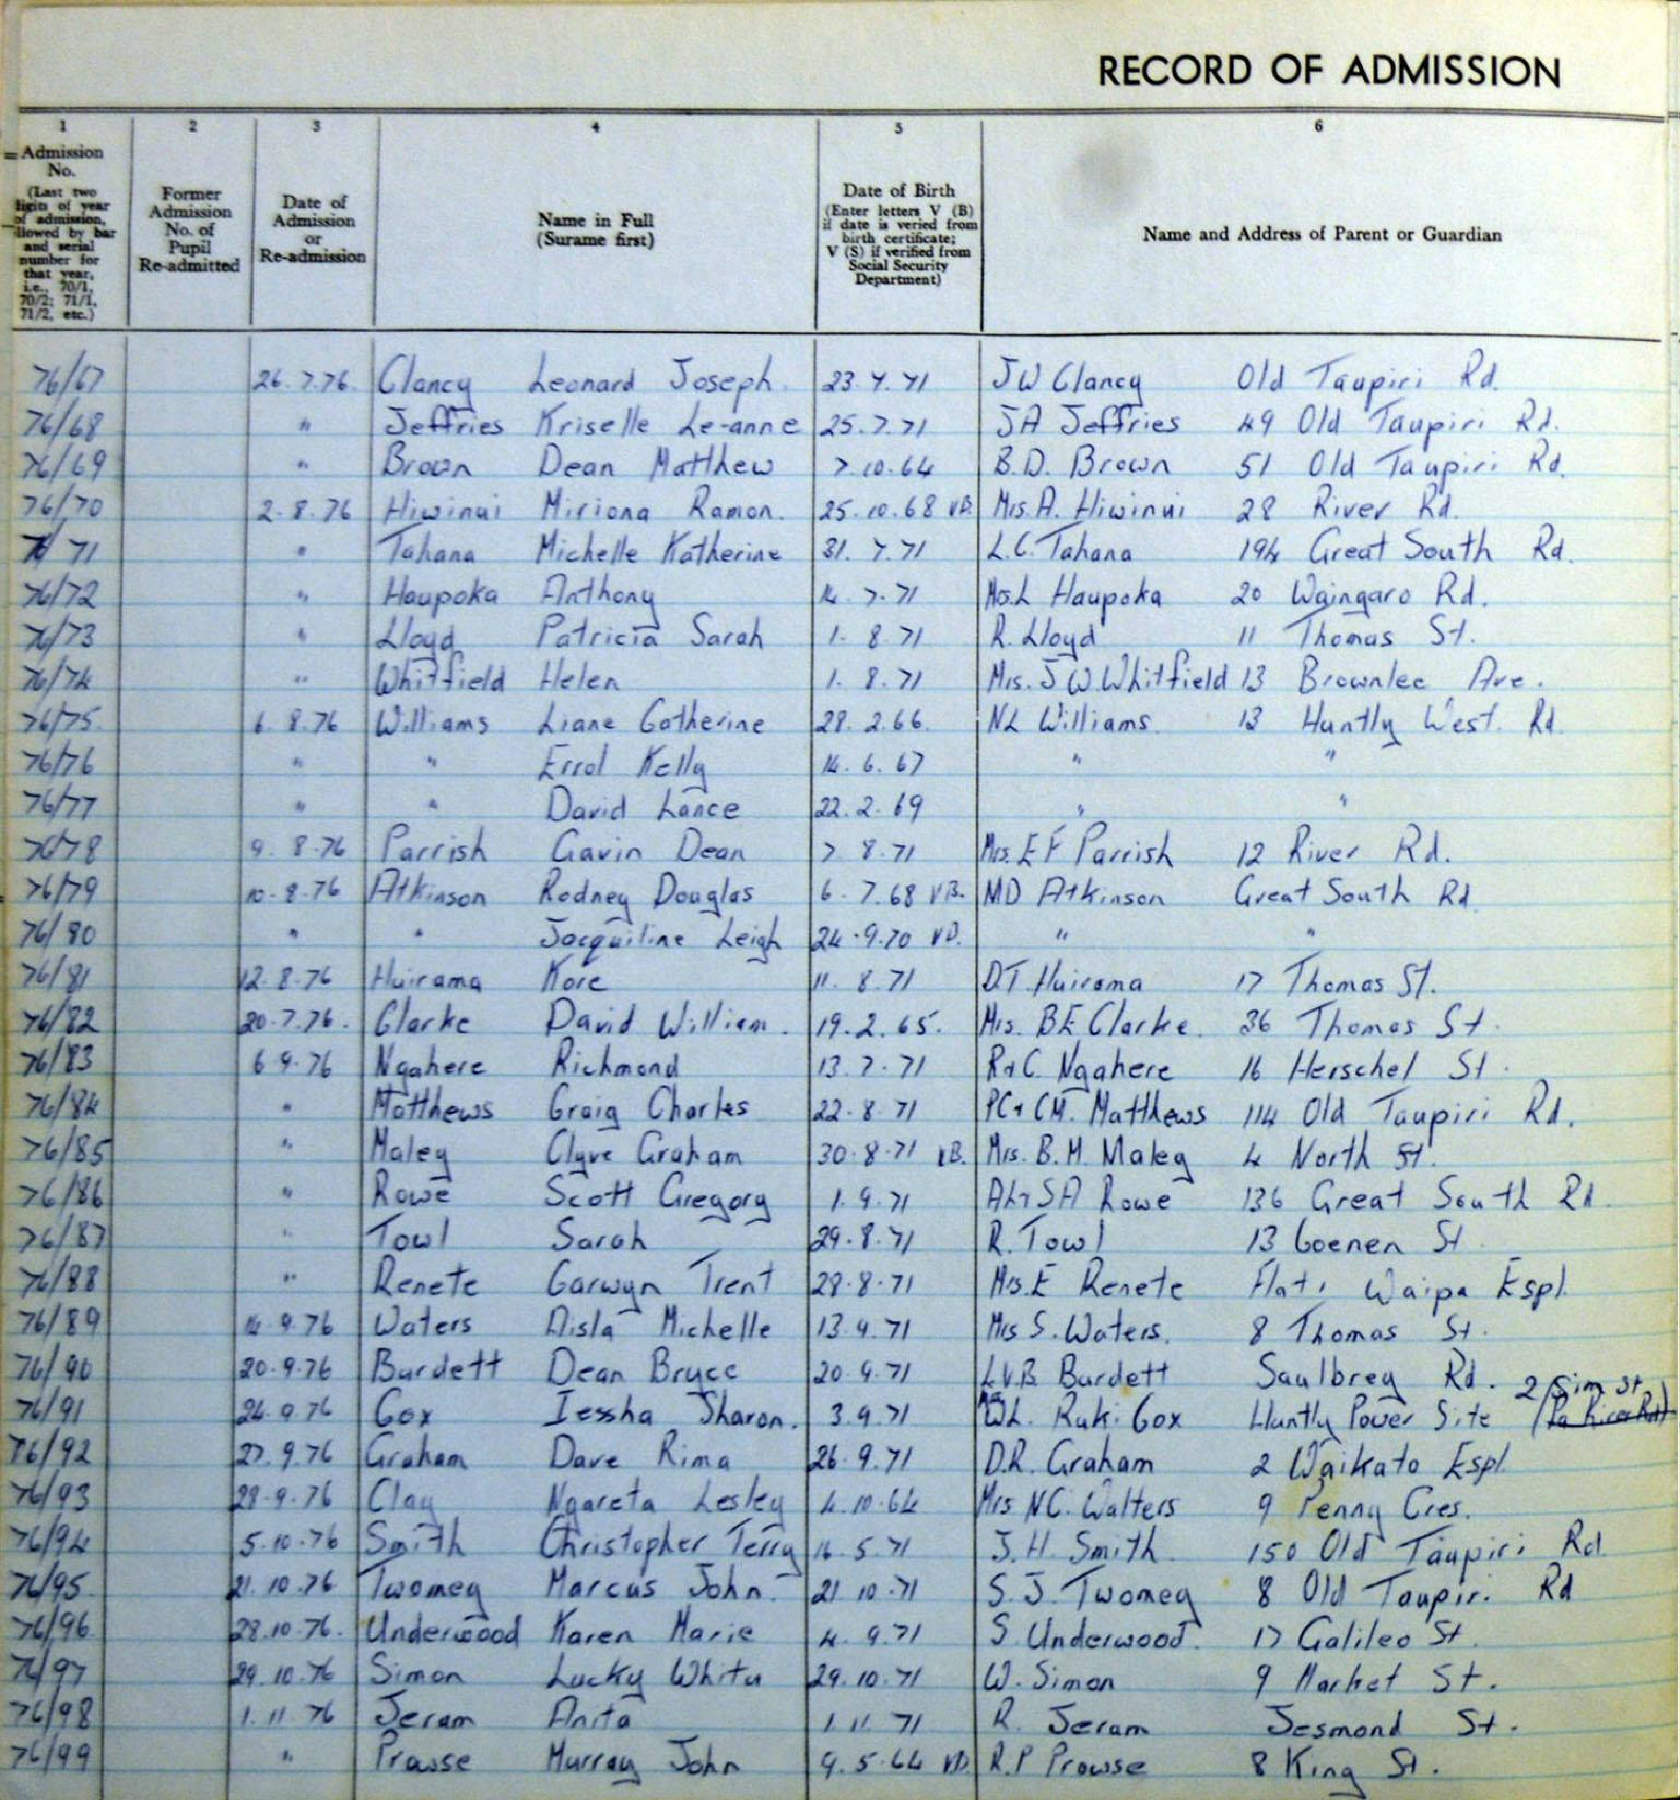 RECORD OF ADMISSION
1 2 3 4 5 6
Admission No. (Last two digits of year of admission, followed by bar and serial number for that year, i.e., 70/1, 70/2; 71/1, 71/2, etc.)
Former Admission No. of Pupil Re-admitted
Date of Admission or Re-admission
Name in Full (Surame first)
Date of Birth (Enter letters V (B) if date is veried from birth certificate; V (S) if verified from Social Security Department)
Name and Address of Parent or Guardian
76/67 26.7.76. Clancy Leonard Joseph. 23.7.71 J W Clancy Old Taupiri Rd.
76/68 " Jeffries Kriselle Le-anne 25.7.71 J A Jeffries 49 Old Taupiri Rd.
76/69 " Brown Dean Matthew 7.10.64 B.D. Brown 51 Old Taupiri Rd.
76/70 2.8.76 Hiwinui Miriona Ramon. 25.10.68 VB. Mrs. A. Hiwinui 28 River Rd.
71 " Tahana Michelle Katherine 31.7.71 L.C. Tahana 194 Great South Rd.
76/72 " Haupoka Anthony 14.7.71 Mrs. L Haupoka 20 Waingaro Rd.
76/73 " Lloyd Patricia Sarah 1.8.71 R. Lloyd 11 Thomas St.
76/74 " Whitfield Helen 1.8.71 Mrs. J W. Whitfield 13 Brownlee Ave.
76/75 6.8.76 Williams Liane Catherine 28.2.66. N L Williams. 13 Huntly West. Rd
76/76 " " Errol Kelly 14.6.67 " "
76/77 " " David Lance 22.2.69 " "
76/78 9.8.76 Parrish Gavin Dean 7.8.71 Mrs. E F Parrish 12 River Rd.
76/79 10.8.76 Atkinson Rodney Douglas 6.7.68 VB. M D Atkinson Great South Rd
76/80 " " Jacquiline Leigh 24.9.70 VB. " "
76/81 12.8.76 Huirama Kore 11.8.71 D.T. Huirama 17 Thomas St.
76/82 20.7.76. Clarke David William. 19.2.65. Mrs. B E Clarke. 36 Thomas St.
76/83 6.9.76 Ngahere Richmond 13.7.71 R+C. Ngahere 16 Herschel St.
76/84 " Matthews Craig Charles 22.8.71 PC+CM. Matthews 114 Old Taupiri Rd.
76/85 " Maley Clyve Graham 30.8.71 VB. Mrs. B.M. Maley 4 North St.
76/86 " Rowe Scott Gregory 1.9.71 AL+SA Rowe 136 Great South Rd.
76/87 " Towl Sarah 29.8.71 R. Towl 13 St
76/88 " Renete Garwyn Trent 28.8.71 Mrs. E Renete Flat 1 Waipa Espl.
76/89 14.9.76 Waters Aisla Michelle 13.9.71 Mrs S. Waters. 8 Thomas St.
76/90 20.9.76 Burdett Dean Bryce 20.9.71 L.V.B Burdett Saulbrey Rd. 2 Sim St
76/91 24.9.76 Cox Iessha Sharon. 3.9.71 Ruki Cox Huntly Power Site
76/92 27.9.76 Graham Dave Rima 26.9.71 D.R. Graham 2 Waikato Espl.
76/93 28.9.76 Clay Ngareta Lesley 4.10.64 Mrs N.C. Walters 9 Penny Cres.
76/94 5.10.76 Smith Christopher Terry 16.5.71 J.H. Smith 150 Old Taupiri Rd.
76/95 21.10.76 Twomey Marcus John. 21.10.71 S.J. Twomey 8 Old Taupiri Rd
76/96 28.10.76. Underwood Karen Marie 4.9.71 S. Underwood. 17 Galileo St.
76/97 29.10.76 Simon Lucky Whitu 29.10.71 W. Simon 9 Market St.
76/98 1.11.76 Jeram Anita 1.11.71 R. Jeram Jesmond St.
76/99 " Prowse Murray John 9.5.64 VB. R.P Prowse 8 King St.